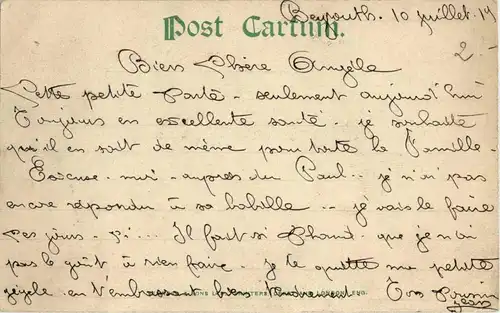 Beyrouth. 10 juillet. 19
Post Cartum.
2
Bien Chère Angèle
Cette petite Carte - seulement aujourd'hui
Toujours en excellente santé. je souhaite
qu'il en soit de même pour toute la Famille.
Excuse-moi - auprès du Paul... je n'ai pas
encore répondu à sa babille... je vais le faire
ces jours-ci... Il fait si chaud. que je n'ai
pas le goût à rien faire. je te quitte ma petite
en t'embrassant bien tendrement Ton Cousin
Jean